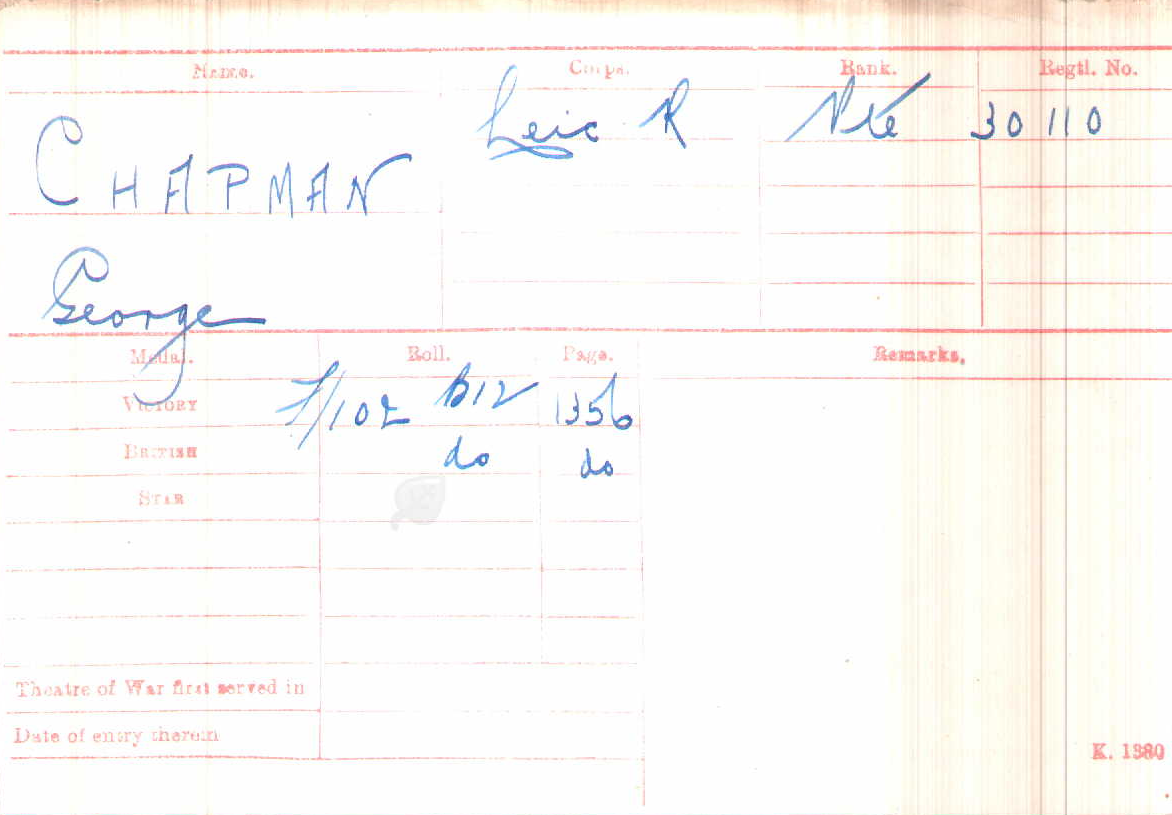 Name. Corps. Rank. Regtl. No.
CHAPMAN Leic R Pte 30110
George
Medal. Roll. Page. Remarks.
VICTORY F/102 B12 1356
BRITISH do do
STAR
Theatre of War first served in
Date of entry therein
K. 1380